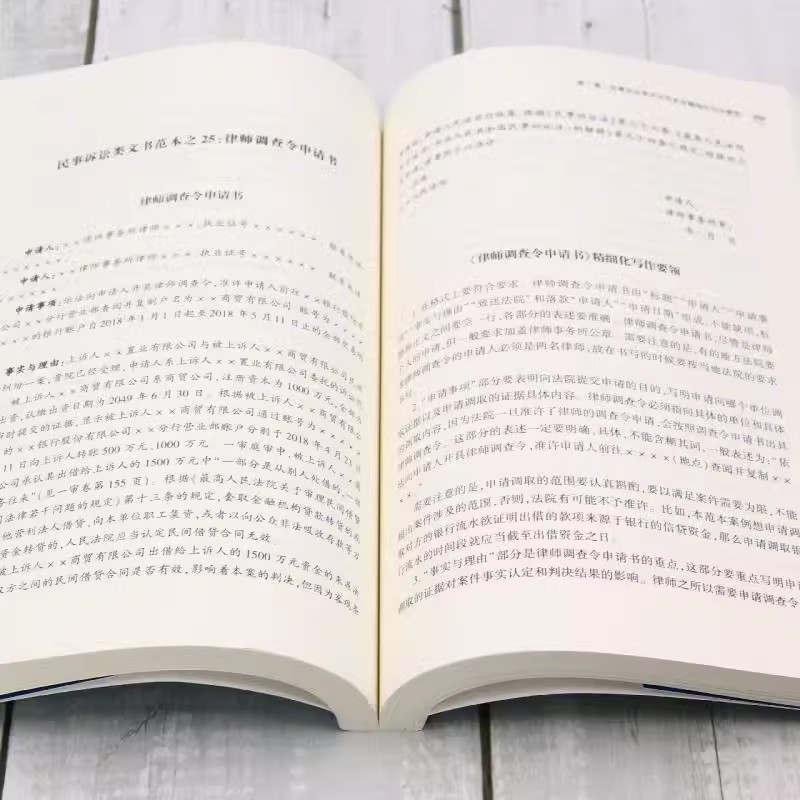 民事诉讼类文书范本之25：律师调查令申请书
律师调查令申请书
申请人：××律师事务所律师×××，执业证号××××××，
××××××。
申请人：××律师事务所律师×××，执业证号××××××，
××××××。
申请事项：依法向申请人开具律师调查令，准许申请人前往××银行股份有
公司××分行营业部查阅并复制户名为××商贸有限公司 账号为××××
××的银行账户自2018年1月1起至2018年5月11日止的
事实与理由：上诉人××置业有限公司与被上诉人××商贸有限公司民
纠纷一案，贵院已经受理，申请人系上诉人××置业有限公司委托的诉讼代
被上诉人××商贸有限公司系商贸公司，注册资本为1000万元，全部为
出资，认缴出资日期为2049年6月30日。根据被上诉人××商贸有限公司
时提交的证据，显示被上诉人××商贸有限公司通过账号为×××××
的××银行股份有限公司××分行营业部账户分别于2018年4月23日
11日向上诉人转账500万元、1000万元。一审庭审中，被上诉人××
公司承认其出借给上诉人的1500万元中“一部分是从别人处借的，一
务往来”（见一审卷第155页）。根据《最高人民法院关于审理民间借贷
用法律若干问题的规定》第十三条的规定，套取金融机构贷款转贷的
他营利法人借贷、向本单位职工集资，或者以向公众非法吸收存款等方
资金转贷的，人民法院应当认定民间借贷合同无效。
被上诉人××商贸有限公司出借给上诉人的1500万元资金的来源
双方之间的民间借贷合同是否有效，影响着本案的判决，但因为客观条
申请人：
律师事务所：
年 月 日
《律师调查令申请书》精细化写作要领
1.在格式上要符合要求。律师调查令申请书由“标题”“申请人”“申请事
项”“事实与理由”“致送法院”和落款“申请人”“申请日期”组成，不能缺项，标
题和正文之间要空一行，各部分的表述要准确。律师调查令申请书，尽管是律师
个人的申请，但一般要求加盖律师事务所公章。需要注意的是，有的地方法院要
求律师调查令的申请人必须是两名律师，故在书写的时候要按当地法院的要求
2.“申请事项”部分要表明向法院提交申请的目的，写明申请向哪个单位调
取证据以及要申请调取的证据具体内容。律师调查令必须指向具体的单位和具体
的调取内容，因为法院一旦准许了律师的调查令申请，会按照调查令申请书出具
律师调查令。这部分的表述一定要明确、具体，不能含糊其词，一般表述为：“依
法向申请人开具律师调查令，准许申请人前往××××（地点）查阅并复制××
需要注意的是，申请调取的范围要认真斟酌，要以满足案件需要为限，不能
超出案件涉及的范围，否则，法院有可能不予准许。比如，本范本案例想申请调
取对方的银行流水欲证明出借的款项来源于银行的信贷资金，那么申请调取银
行流水的时间段就应当截至出借资金之日。
3.“事实与理由”部分是律师调查令申请书的重点，这部分要重点写明申请
调取的证据对案件事实认定和判决结果的影响。律师之所以需要申请调查令